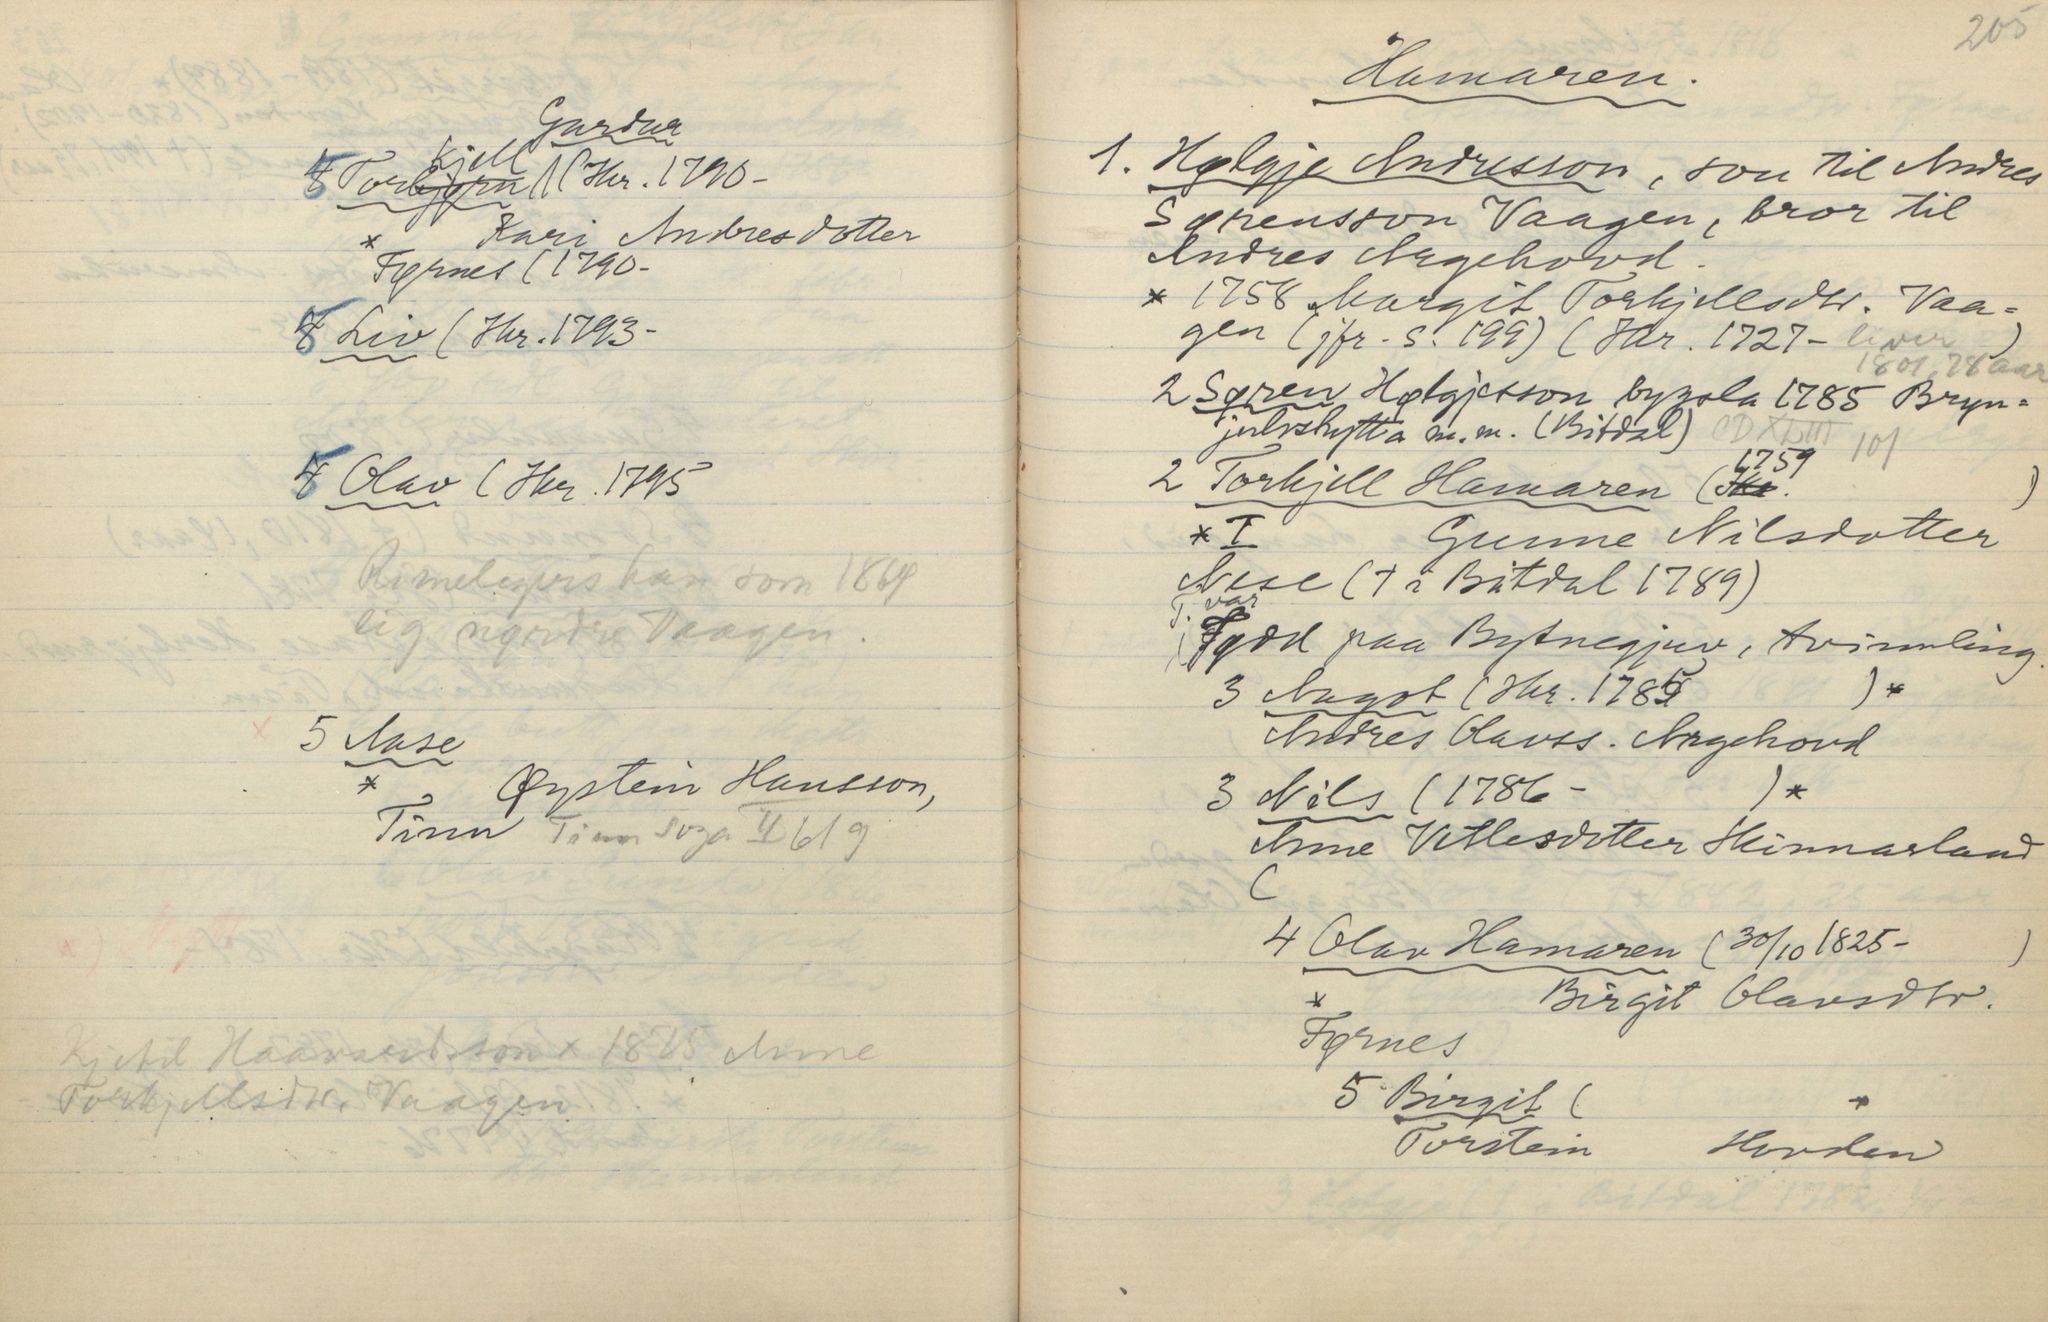 Gardar
Kjell
5 Torbjørn (Hkr. 1790-
* Kari Andresdotter
Førnes (1790-
5 Liv (Hkr. 1793-
5 Olav (Hkr. 1795
Rimelegvis han som 1864
lig nørdre Vaagen.
5 Aase
* Øystein Hansson,
Tinn Tinn Soga II 619
Kjetil Haavardsson x 1815 Anne
Torkjellsdtr. Vaagen
205
Hamaren.
1. Hølgje Andresson, son til Andres
Sørensson Vaagen, bror til
Andres Argehovd.
* 1758 Margit Torkjellsdtr. Vaa=
gen (jfr. S. 199) (Hkr. 1727- liver )
1801, 78 aar
2 Søren Hølgjesson bygsla 1785 Bryn=
julvshytta m.m. (Bitdal) CD XLIII 101
1759
2 Torkjell Hamaren (Hkr. )
* I Gunne Nilsdotter
Aase († i Bitdal 1789)
T. var
Fødd paa Bytnegjuv, tvinnling.
3 Aagot (Hkr. 1785 ) *
Andres Olavss. Argehovd
3 Nils (1786- ) *
Anne Vetlesdotter Skinnarland
(
4 Olav Hamaren (30/10 1825- )
* Birgit Olavsdtr.
Førnes
5 Birgit ( *
Torstein Hovden